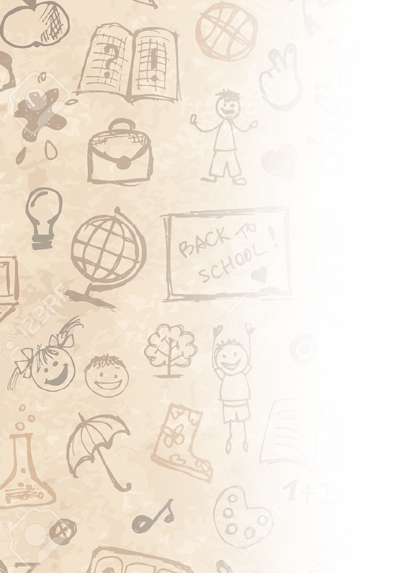 ? !
BACK TO
SCHOOL!
123RF
1+2